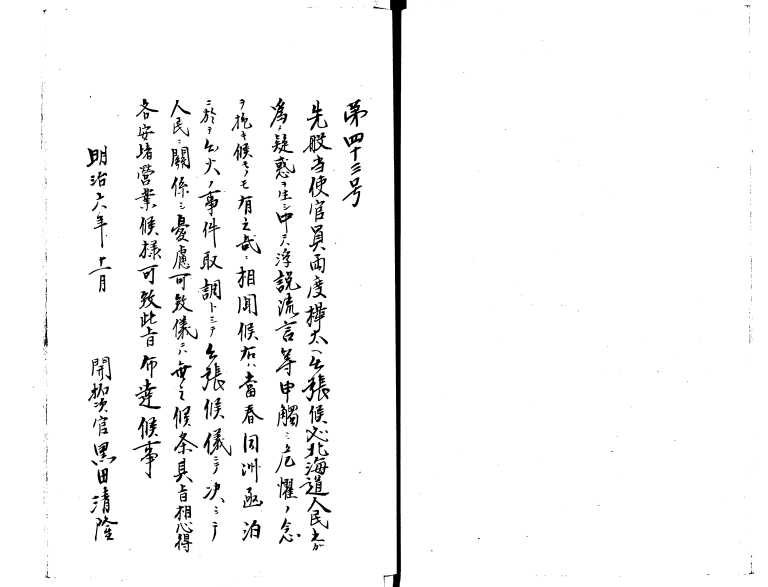 第四十三号
先般当使官員両度樺太ヘ出張候処北海道人民之カ
為ニ疑惑ヲ生シ中ニハ浮説流言等申觸シ危懼ノ念
ヲ抱キ候モノモ有之哉ニ相聞候右ハ當春同洲函泊
ニ於テ出火ノ事件取調トシテ出張候儀ニテ決シテ
人民ニ關係シ憂慮可致儀ニハ無之候条其旨相心得
各安堵營業候様可致此旨布達候事
明治六年十一月
開拓次官黒田清隆